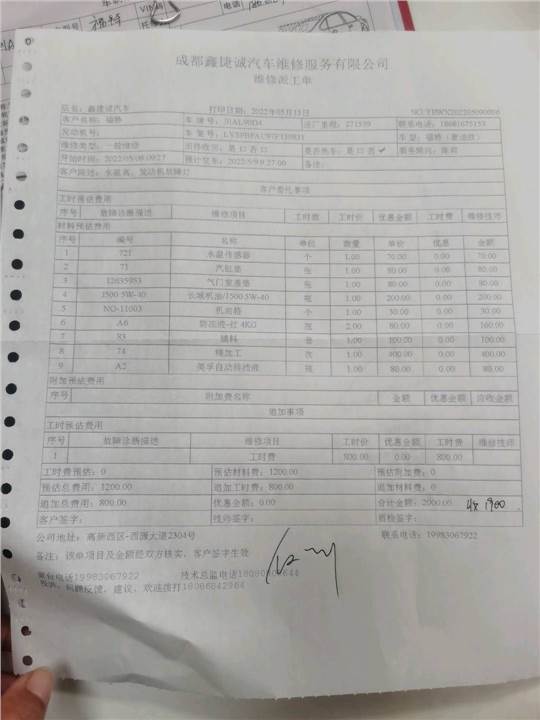 福特
成都鑫捷诚汽车维修服务有限公司
维修派工单
店名：鑫捷诚汽车 打印日期：2022年05月13日
客户名称：福特 车牌号：川AL90D4 出厂里程：271539 联系电话：18081675153
发动机号： 车架号： 车型：福特（蒙迪欧）
维修类型：一般维修 旧件收回：是 否 是否洗车：是 否
开始时间：2022/05/09 09:27 预计交车：2022/5/9 9:27:00 备注：
客户描述：水温高，发动机故障灯
客户委托事项
工时预估费用
序号 故障诊断描述 维修项目 工时数 工时价 优惠金额 工时费 维修技师
材料预估费用
序号 编号 名称 单位 数量 单价 优惠 金额
1 721 水温传感器 个 1.00 70.00 0.00 70.00
2 71 汽缸垫 张 1.00 80.00 0.00 80.00
3 气门室盖垫 张 1.00 80.00 0.00 80.00
4 J500 5W-40 长城机油/J500 5W-40 瓶 1.00 200.00 0.00 200.00
5 NO-11003 机油格 个 1.00 30.00 0.00 30.00
6 A6 防冻液-红 4KG 瓶 2.00 80.00 0.00 160.00
7 83 辅料 套 1.00 100.00 0.00 100.00
8 74 缸加工 次 1.00 400.00 0.00 400.00
9 A2 美孚自动排挡液 瓶 1.00 80.00 0.00 80.00
附加预估费用
序号 附加费名称 金额 优惠金额 应收金额
追加事项
工时预估费用
序号 故障诊断描述 维修项目 工时价 优惠金额 工时费 维修技师
1 工时费 800.00 0.00 800.00
工时费预估：0 预估材料费：1200.00 预估附加费：0
预估总费用：1200.00 追加工时费：800.00 追加材料费：0
追加总费用：800.00 优惠金额：0.00 合计金额：2000.00 收 1900
客户签字： 接待签字： 质检签字：
公司地址：高新西区-西源大道2304号 联系电话：19983067922
备注：该单项目及金额经双方核实，客户签字生效
前台电话19983067922 技术总监电话
投诉，问题反馈，建议，欢迎拨打18066842964